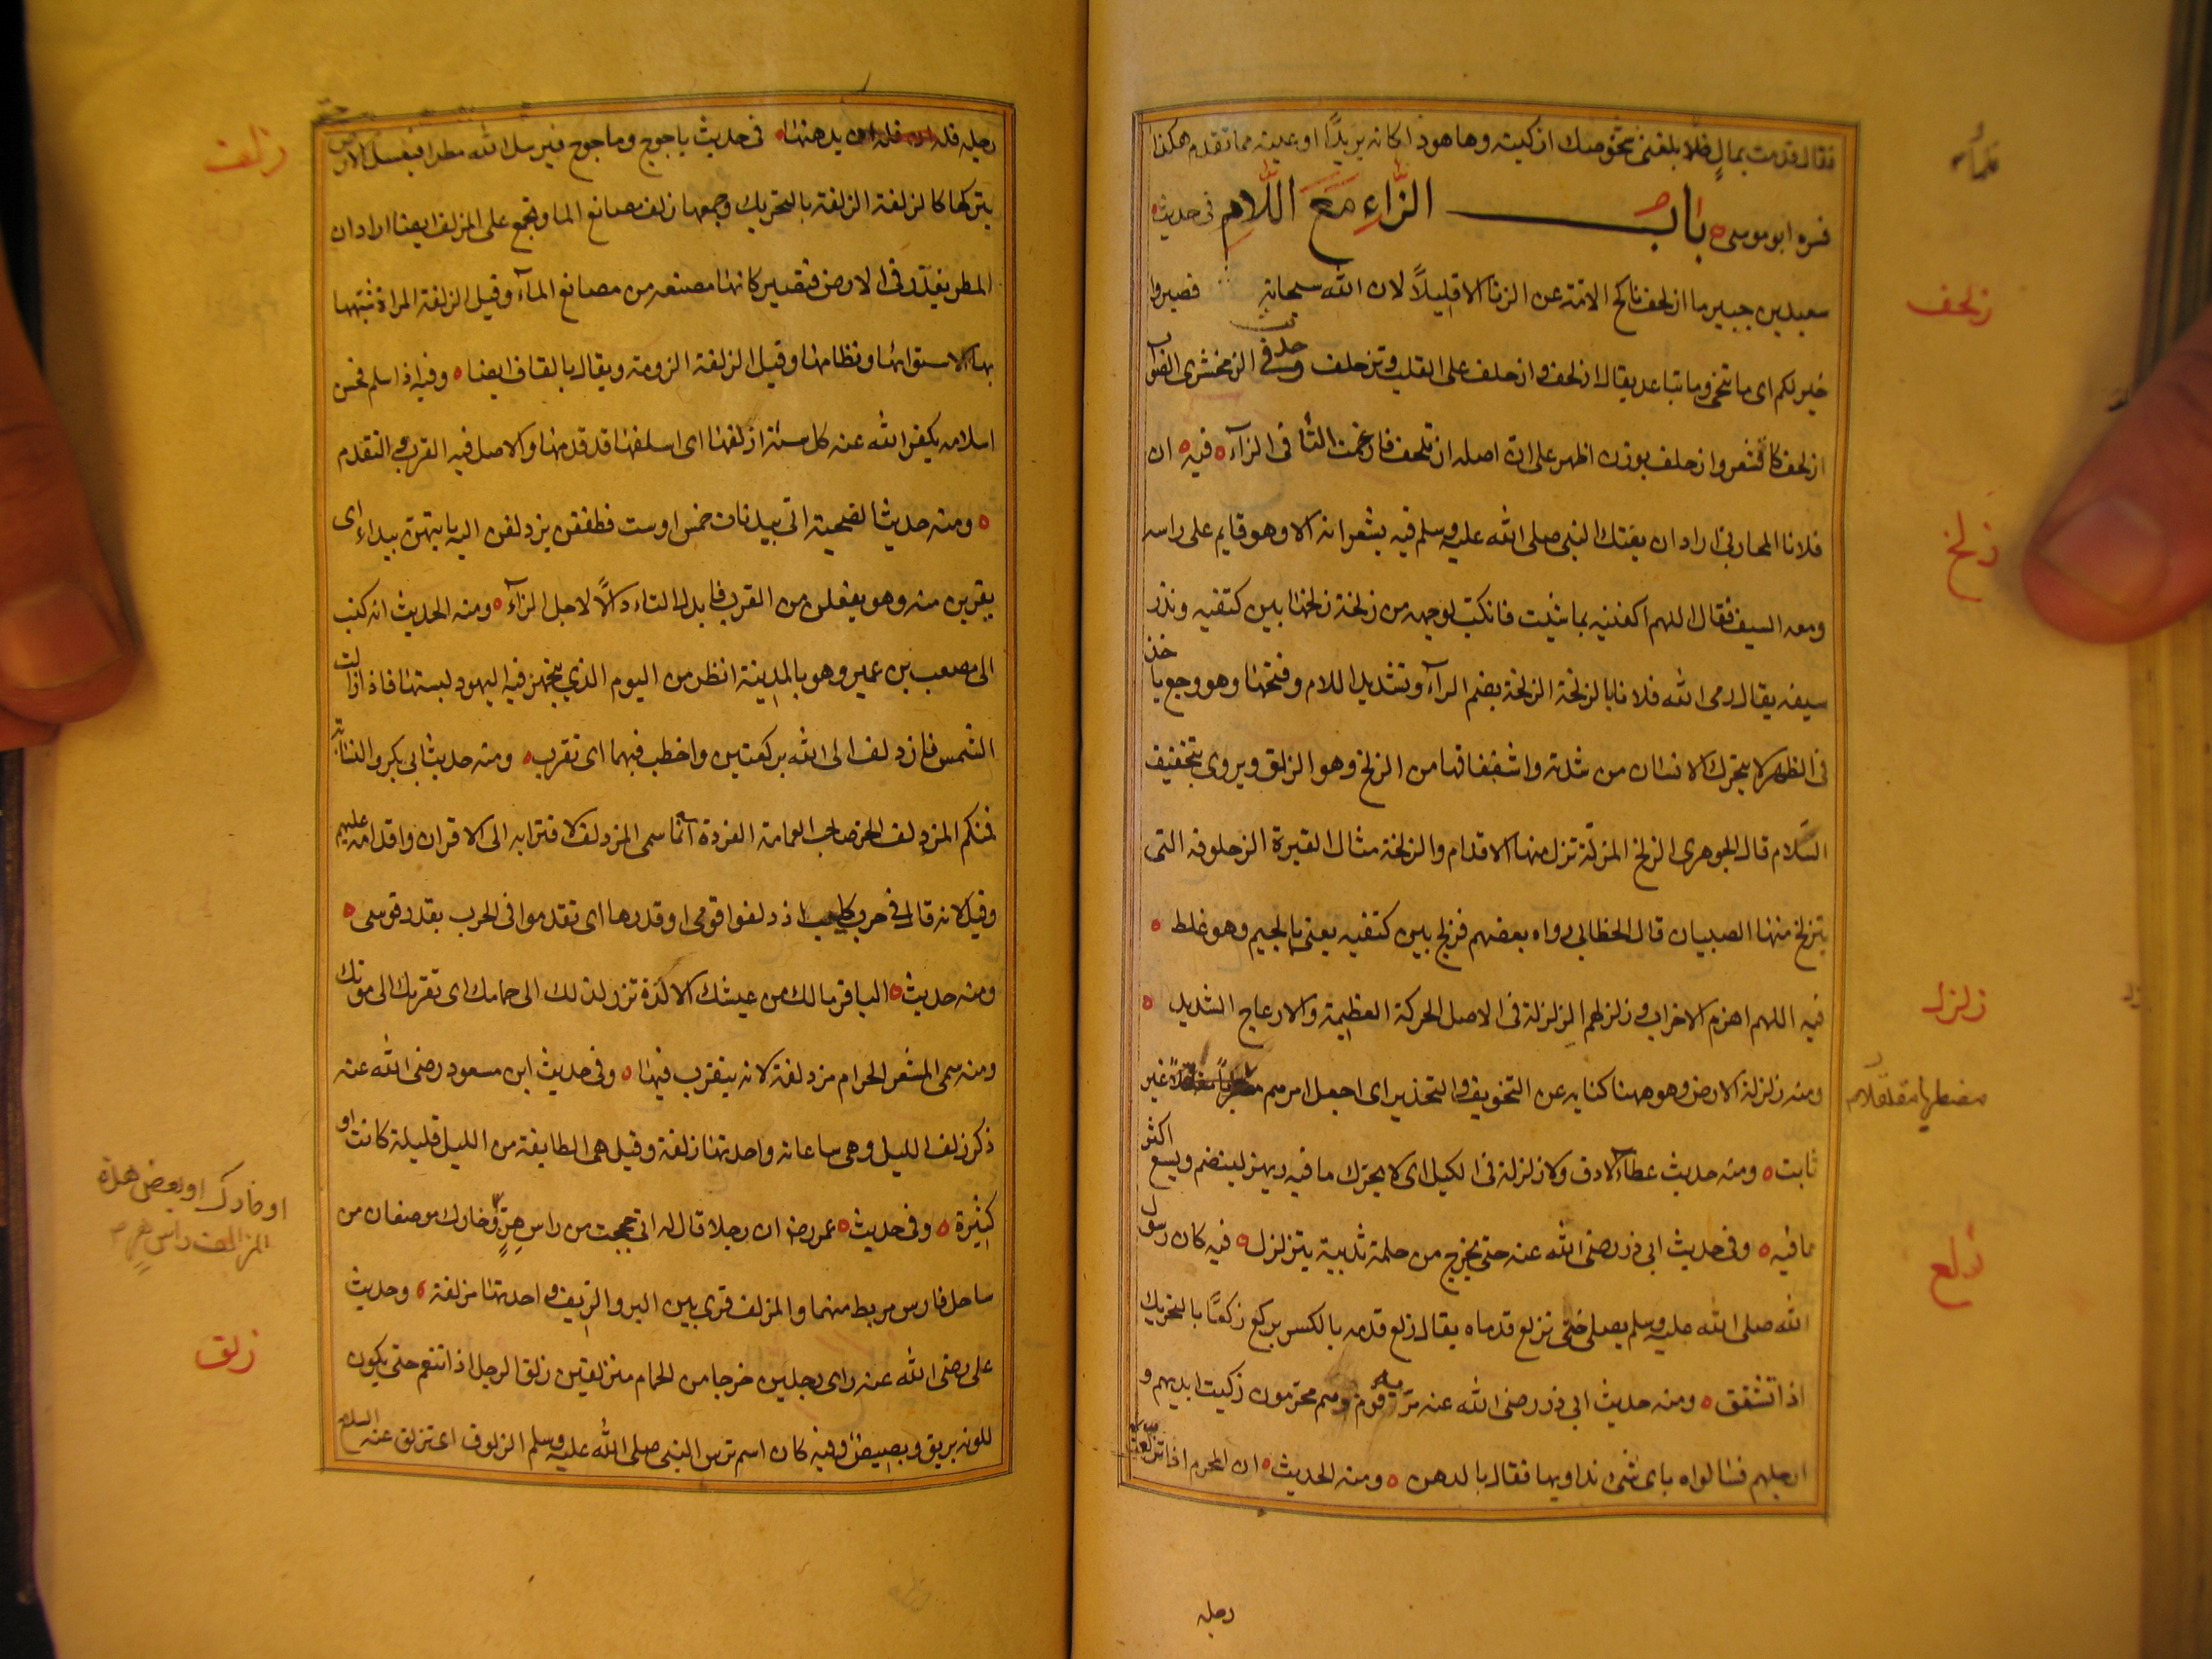 فقال قدمت بمال فلما بلغني شخوصك ازكيته وها هو ذا كانه يريد اوعيته مما تقدم هكذا
فسره ابو موسى باب الزاء مع اللام في حديث
سعيد بن جبير ما ازلحف ناكح الامة عن الزنا الا قليلا لان الله سبحانه وان تصبروا
خير لكم اى ما تنحى وما تباعد يقال ازلحف وازحلف على القلب وتزحلف
ازلحف كاقشعر وازحلف بوزن اظهر على ان اصله ازتلحف فادغمت التا فى الزآء فيه ان
فلانا المحاربى اراد ان يفتك النبى صلى الله عليه وسلم فلم يشعر به الا وهو قايم على راسه
ومعه السيف فقال اللهم اكفنيه بما شيت فانكب لوجهه من زلخة زلخها بين كتفيه وندر
سيفه يقال رمى الله فلانا بالزلخة الزلخة بضم الزآء وتشديد اللام وفتحها وهو وجع ياخذ
فى الظهر لا يتحرك الانسان من شدته واشتقاقها من الزلخ وهو الزلق ويروى بتخفيف
اللام قال الجوهرى الزلخ المزلة تزل منها الاقدام والزلخة مثال القبرة الزحلوقة التى
يتزلخ منها الصبيان قال الخطابى رواه بعضهم فزلج بين كتفيه يعنى بالجيم وهو غلط
فيه اللهم اهزم الاحزاب وزلزلهم الزلزلة فى الاصل الحركة العظيمة والازعاج الشديد
ومنه زلزلة الارض وهو ههنا كنايه عن التخويف والتحذير اى اجعل امرهم غير
ثابت ومنه حديث عطا لا دق ولا زلزلة فى الكيل اى لا يحرك ما فيه ويهز لينضم ويسع اكثر
مما فيه وفى حديث ابى ذر رضى الله عنه حتى يخرج من حلمة ثدييه يتزلزل فيه كان رسول
الله صلى الله عليه وسلم يصلى حتى تزلع قدماه يقال زلع قدمه بالكسر يزلع زلعا بالتحريك
اذا تشقق ومنه حديث ابى ذر رضى الله عنه مر به قوم وهم محرمون وقد تزلعت ايديهم و
ارجلهم فسالوه باى شى نداويها فقال بالدهن ومنه الحديث ان المحرم اذا تزلعت
رجله
زلحف
زلخ
زلزل
مضطربا متقلقلا
زلع
رجله فله ان يدهنها فى حديث ياجوج وماجوج فيرسل الله مطرا فيغسل الارض حتى
يتركها كالزلفة الزلفة بالتحريك وجمعها زلف مصانع الما وتجمع على المزالف ايضا اراد ان
المطر يغدر فى الارض فتصير كانها مصنعه من مصانع المآء وقيل الزلفة المراة شبهها
بها لاستوائها ونظافتها وقيل الزلفة الروضة ويقال بالقاف ايضا وفيه اذا اسلم فحسن
اسلامه يكفر الله عنه كل سيئة ازلفها اى اسلفها قد قدمها والاصل فيه القرب والتقدم
ومنه حديث الضحية اتى ببدنات خمس او ست فطفقن يزدلفن اليه بايتهن يبداء اى
يقربن منه وهو يفتعلن من القرب فابدل التاء دالا لاجل الزآء ومنه الحديث انه كتب
الى مصعب بن عمير وهو بالمدينة انظر من اليوم الذي يتجهز فيه اليهود لسبتها فاذا زالت
الشمس فازدلف الى الله بركعتين واخطب فيهما اى تقرب ومنه حديث ابى بكر والنسابة
فمنكم المزدلف الحر صاحب العمامة الفردة انما سمى المزدلف لاقترابه الى الاقران واقدامه عليهم
وقيل لانه قال فى حرب كليب ازدلفوا قوسى او قدرها اى تقدموا فى الحرب بقدر قوسى
ومنه حديث الباقر مالك من عيشك الا لذة تزدلف بك الى حمامك اى تقربك الى موتك
ومنه سمى المشعر الحرام مزدلفة لانه يتقرب فيها وفى حديث ابن مسعود رضى الله عنه
ذكر زلف الليل وهى ساعاته واحدتها زلفة وقيل هى الطايفة من الليل قليلة كانت او
كثيرة وفى حديث عمر رضه ان رجلا قال له انى حججت من راس هر وخارك موضعان من
ساحل فارس يربط منهما والمزالف قرى بين البر والريف واحدتها مزلفة وحديث
على رضى الله عنه راى رجلين خرجا من الحمام متزلقين تزلق الرجل اذا تنعم حتى يكون
للونه بريق وبصيص وفيه كان اسم ترس النبى صلى الله عليه وسلم الزلوق اى تزلق عنه السلاح
زلف
او خارك او بعض هذه
المزالف راس هر
زلق